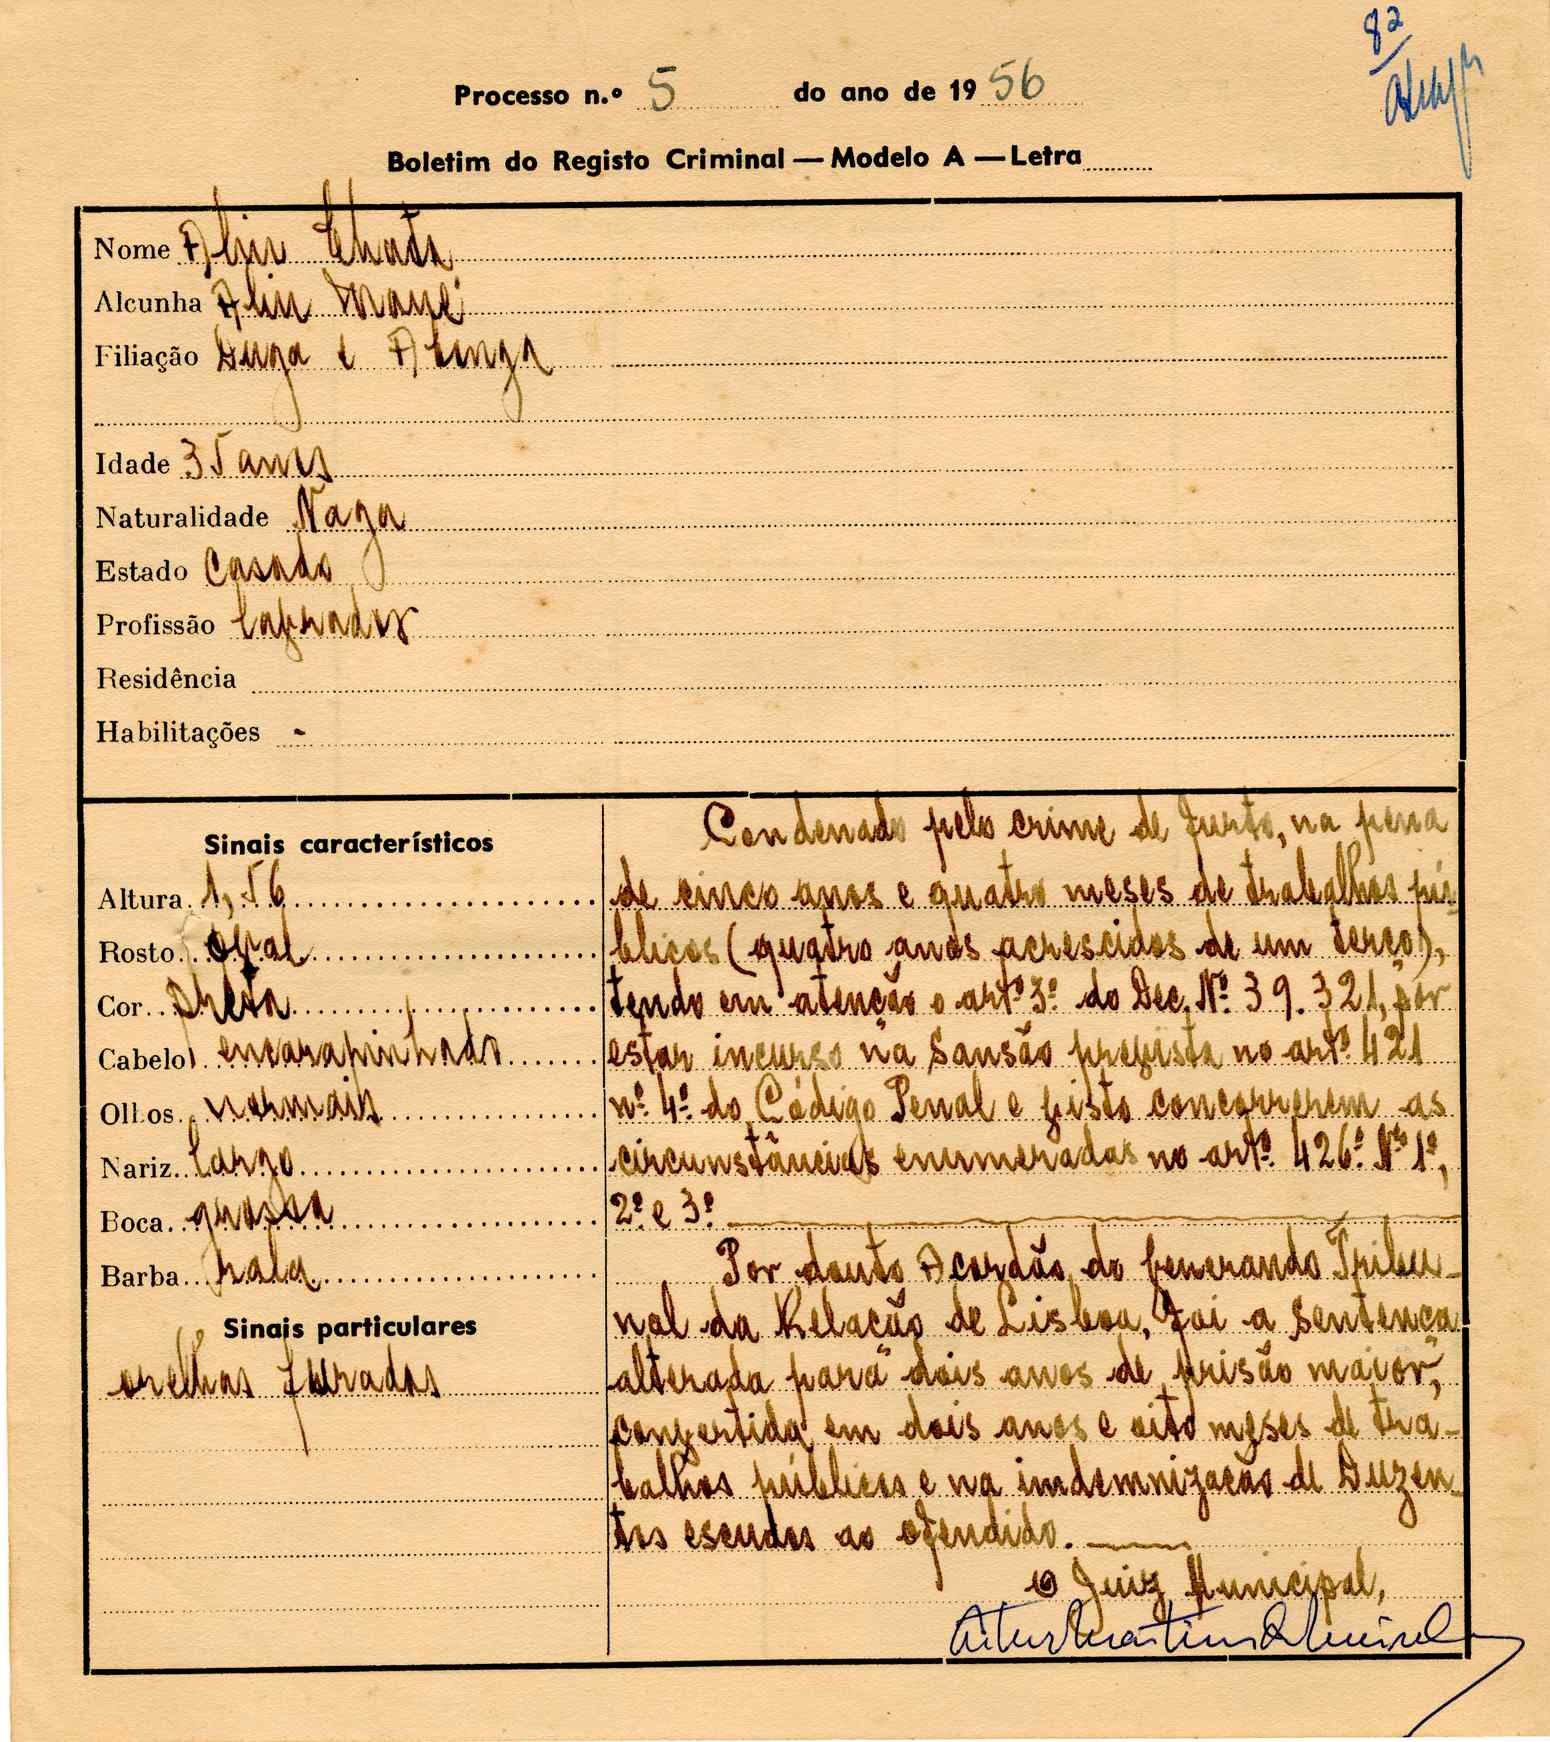 82
Processo n.º 5 do ano de 1956
Boletim do Registo Criminal — Modelo A — Letra
Nome Alin Chata
Alcunha Alin
Filiação Duga e
Idade 35 anos
Naturalidade Naga
Estado Casado
Profissão lavrador
Residência
Habilitações -
Sinais característicos
Altura 1,56
Rosto oval
Cor preta
Cabelo encarapinhado
Olhos normais
Nariz largo
Boca grossa
Barba rala
Sinais particulares
orelhas furadas
Condenado pelo crime de furto, na pena
de cinco anos e quatro meses de trabalhos pú-
blicos (quatro anos acrescidos de um terço),
tendo em atenção o artº 3º do Dec. Nº 39.321, por
estar incurso na sansão prevista no artº 421
nº 4º do Código Penal e visto concorrerem as
circunstâncias enumeradas no artº 426º Nº 1º,
2º e 3º
Por douto Acordão do venerando Tribu-
nal da Relação de Lisboa, foi a sentença
alterada para "dois anos de prisão maior",
convertida em dois anos e oito meses de tra-
balhos públicos e na indemnização de Duzen-
tos escudos ao ofendido.
O Juiz Municipal,